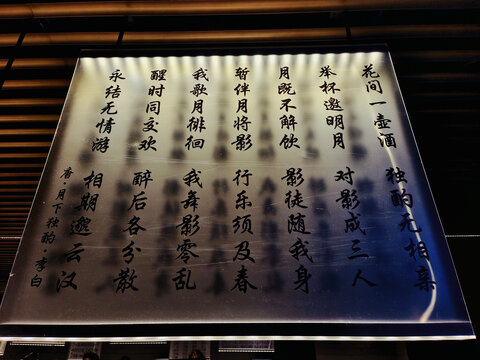 花间一壶酒 独酌无相亲
举杯邀明月 对影成三人
月既不解饮 影徒随我身
暂伴月将影 行乐须及春
我歌月徘徊 我舞影零乱
醒时同交欢 醉后各分散
永结无情游 相期邈云汉
唐·月下独酌·李白